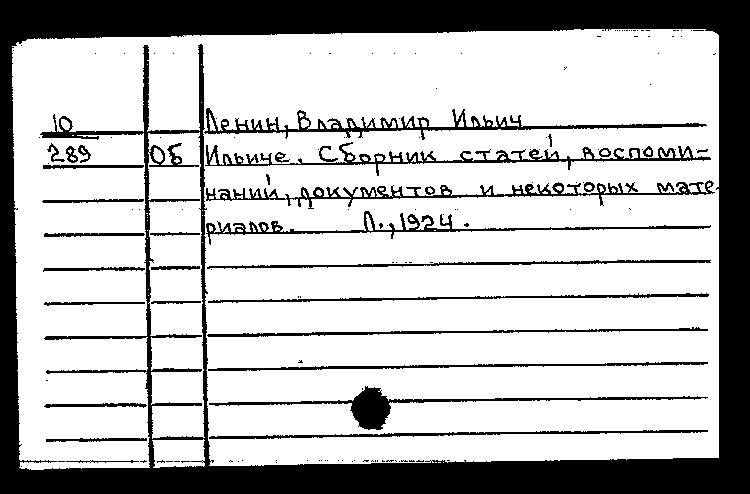 10 Ленин, Владимир Ильич
289 Об Ильиче. Сборник статей, воспоми-
наний, документов и некоторых мате-
риалов. Л., 1924.